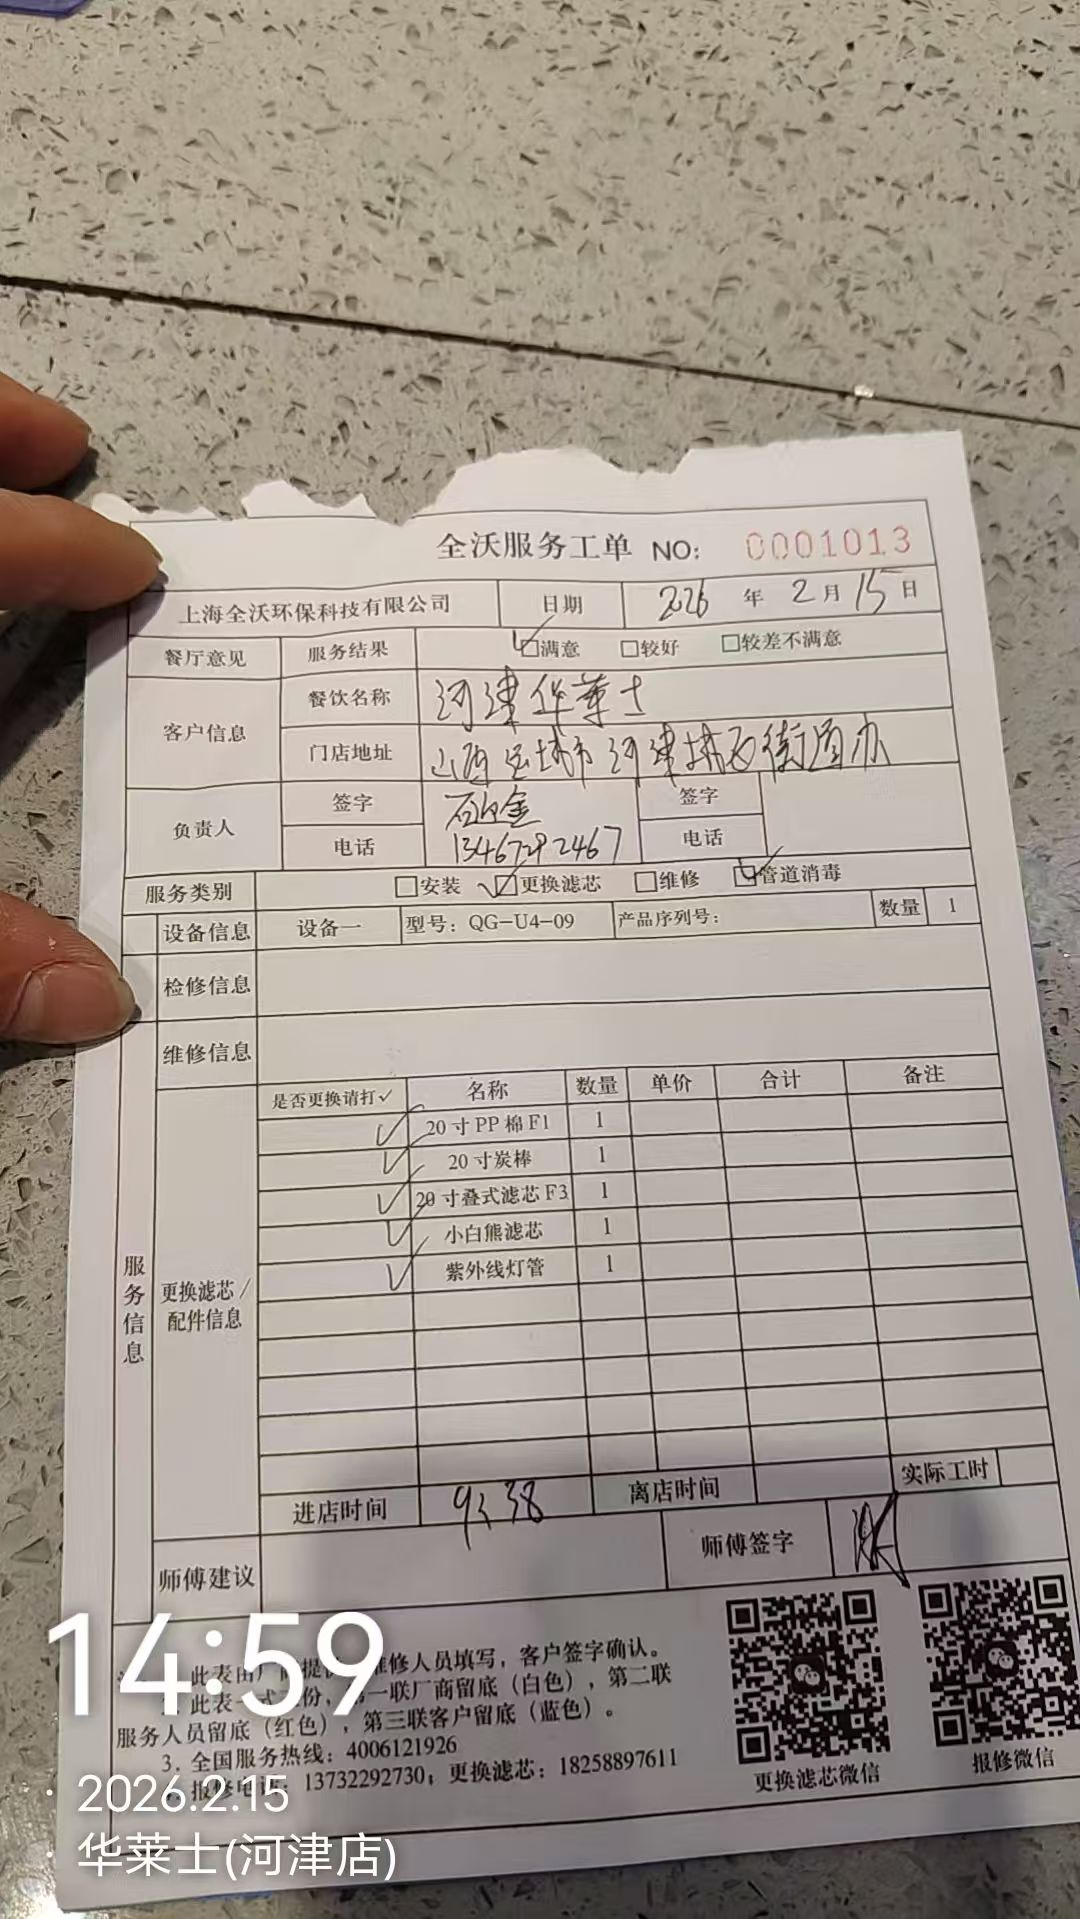 全沃服务工单 NO: 0001013
上海全沃环保科技有限公司 日期 2026 年 2 月 15 日
餐厅意见 服务结果 ☑满意 □较好 □较差不满意
客户信息 餐饮名称 河津华莱士
门店地址 山西运城市河津城区街道办
负责人 签字 签字
电话 电话
服务类别 □安装 ☑更换滤芯 □维修 ☑管道消毒
设备信息 设备一 型号：QG-U4-09 产品序列号： 数量 1
检修信息
维修信息
服务信息
更换滤芯/配件信息
是否更换请打✓ 名称 数量 单价 合计 备注
✓ 20寸PP棉F1 1
✓ 20寸炭棒 1
✓ 20寸叠式滤芯F3 1
✓ 小白熊滤芯 1
✓ 紫外线灯管 1
进店时间 9:38 离店时间 实际工时
师傅建议 师傅签字
此表由厂商提供，维修人员填写，客户签字确认。
此表一式三份，第一联厂商留底（白色），第二联
服务人员留底（红色），第三联客户留底（蓝色）。
3. 全国服务热线：4006121926
报修电话：13732292730；更换滤芯：18258897611
更换滤芯微信 报修微信
14:59
2026.2.15
华莱士(河津店)